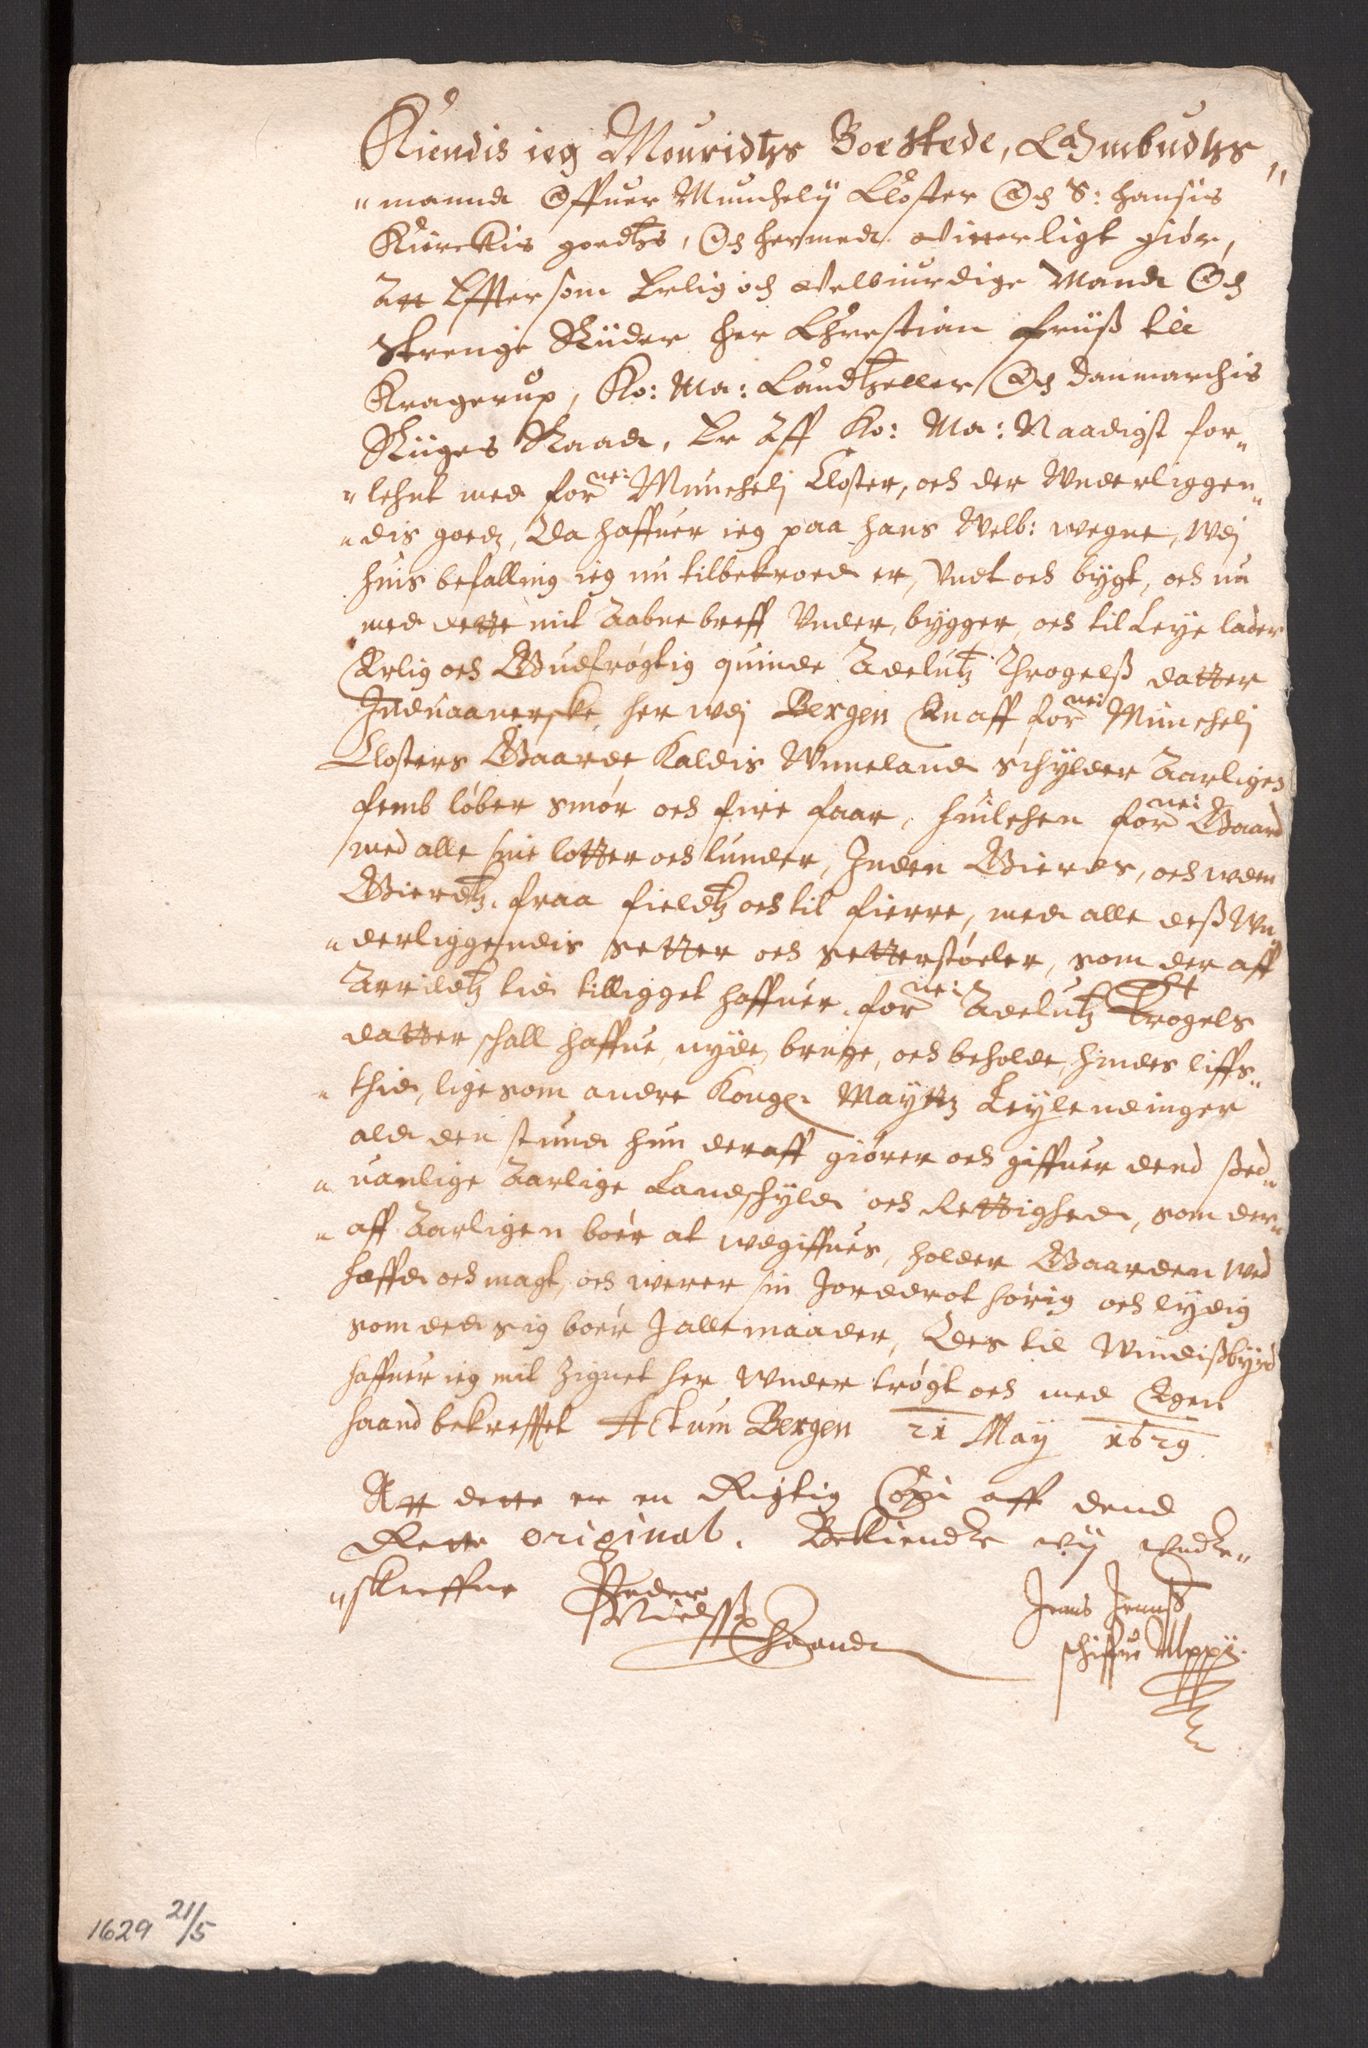 Kiendis ieg Mouridtzs Boestede, Ombudtzs
"mannd Offuer Munchelij Closter Och S: hansis
Kierckis goedtzs, Och hermed Vitterligt giör,
Att Efftersom Erlig och Velbiurdige Mand Och
Strenge Ridder her Chrestian friiß till
Kragerup, Ko: Ma: Candtzeller Och Danmarchis
Riiges Raad, Er Aff Ko: Ma: Naadigst for=
"lehnt med for nei Munchelj Closter, och der Vnderliggen=
"dis goedz, Da haffuer ieg paa hans Velb: wegne, wdj
huis befalling ieg nu tilbetroed er, Vndt och bygt, och nu
med dette mit Aabne breff Vnder, bygger och til Leye lader
Erlig och Gudfrögtig quinde Adelutz Throgelß datter
Induaanerske her wdj Bergen En aff for nei Munchelj
Closters Gaarde Kaldis Vinneland schylder Aarligen
femb löber smör och fire faar, huilchen for nei Gaard
med alle sine lotter och lunder, Inden Gierds, och wden
Gierdtz. fraa fieldtz och til fierre, med alle deß Vn
"derliggendis setter och setterstöeler, som der aff
Arrildtz tid tilligget haffuer. for nei Adelutz Trogels
datter schall haffue, nyde, bruge, och beholde, hindes liffs=
"thid, lige som andre Kongl Maytz Leylendinger
ald den stund hun deraff giörer och giffuer dend sed=
"uanlige Aarlige Landschyld och Rettighed, som der=
"aff Aarligen böer at wdgiffues, holder Gaarden wed
heffd och magt, och werer sin Jorddrot hörig och lydig
som ded sig böer J alle maader, Des til Vindißbyrd
haffuer ieg mit Zignet her Vnder trögt och med Egen
haand bekreffet Actum Bergen 21 May 1629
Att dette er en Rigtig Copi aff dend
Rette original. Bekiende wij vnde=
"skreffne Peder
Nielssß
Haand
Jens Jenß
schiffue Mppij.
1629 21/5